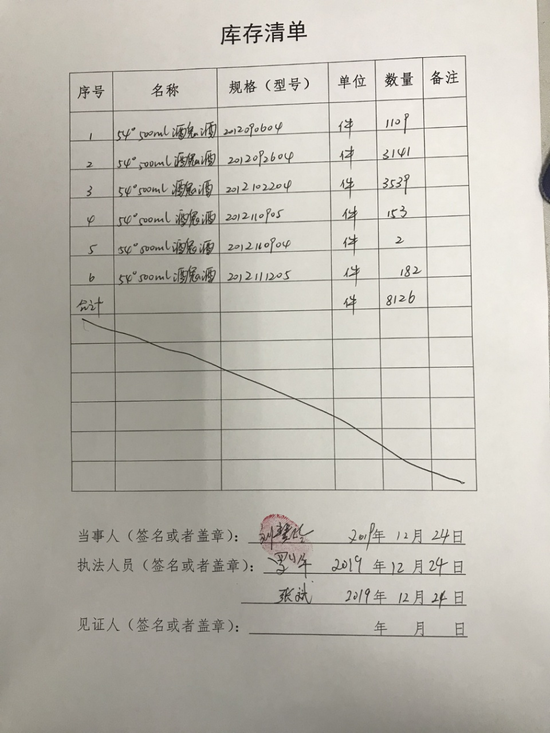 库存清单
序号 名称 规格（型号） 单位 数量 备注
1 54°500ml酒鬼酒 2012090604 件 1109
2 54°500ml酒鬼酒 2012092604 件 3141
3 54°500ml酒鬼酒 2012102204 件 3539
4 54°500ml酒鬼酒 2012110905 件 153
5 54°500ml酒鬼酒 2012110904 件 2
6 54°500ml酒鬼酒 2012111205 件 182
合计 件 8126
当事人（签名或者盖章）： 2019年12月24日
执法人员（签名或者盖章）： 2019年12月24日
张斌 2019年12月24日
见证人（签名或者盖章）： 年 月 日